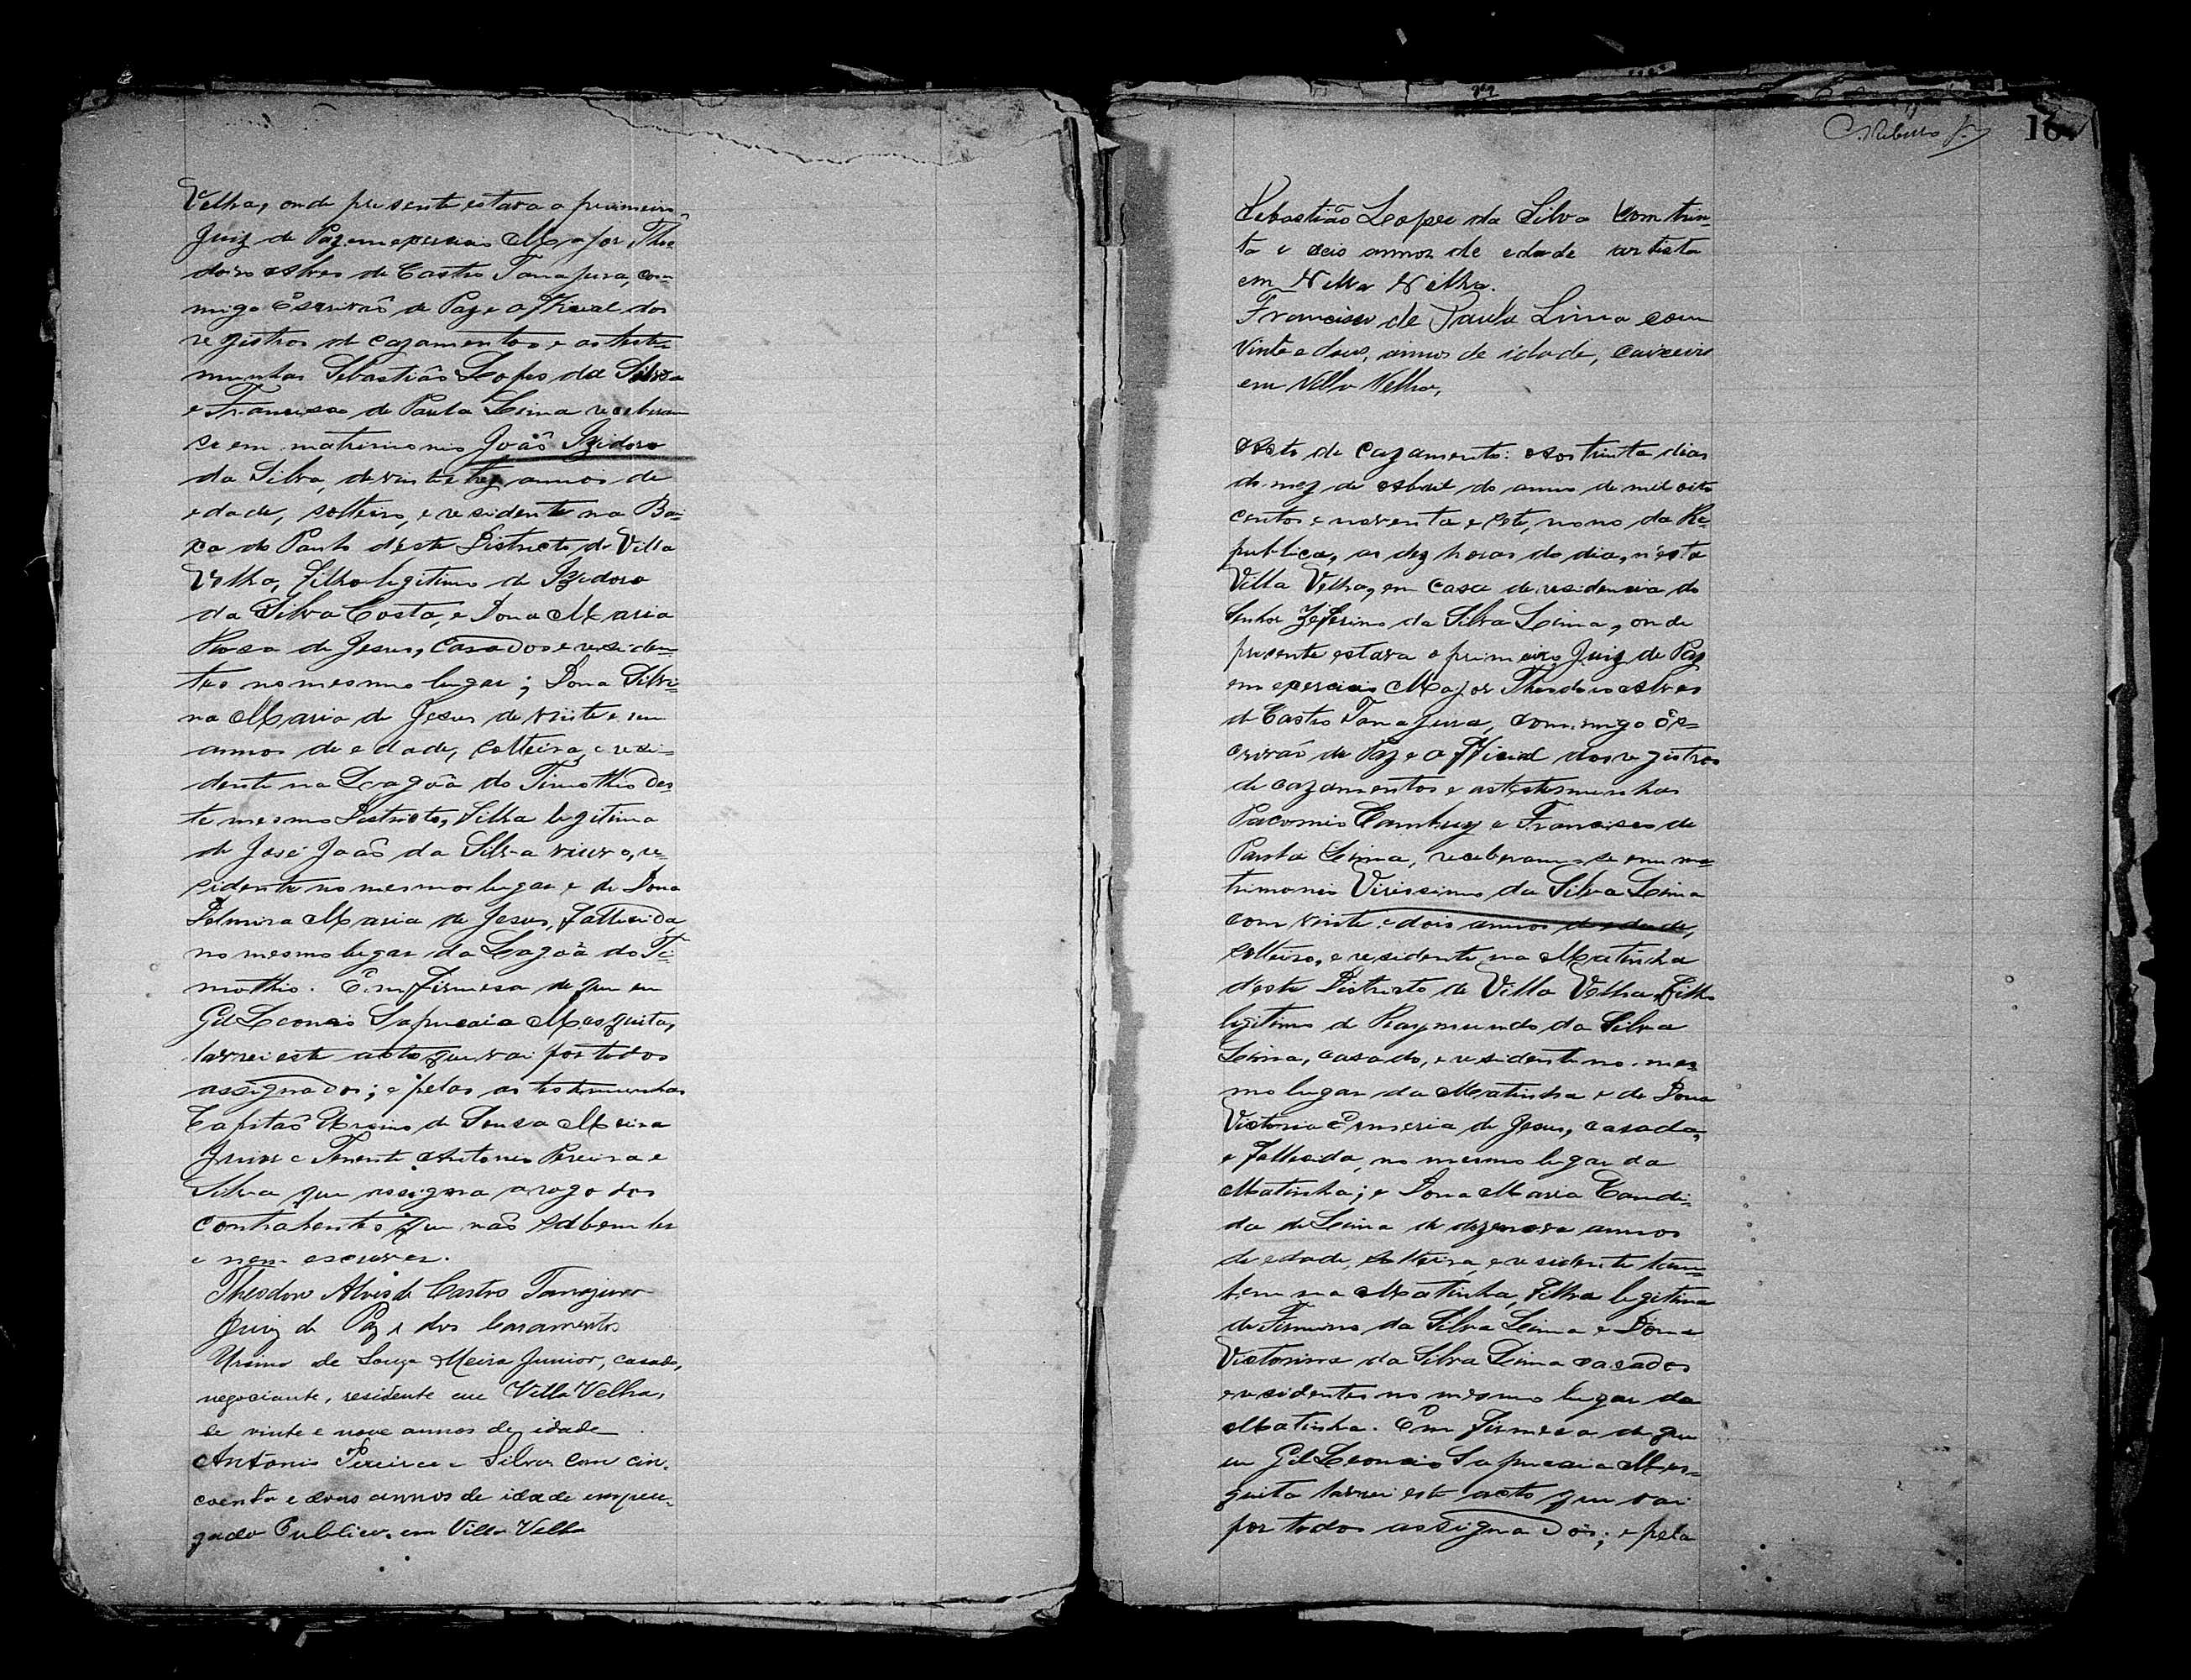 Velha, onde presente estava o primeiro
Juiz de Paz em exercicio Major Theo
doro Alves de Castro Tanajura, com
migo Escrivão de Paz e Official dos
registros de cazamentos e as teste-
munhas Sebastião Lopes da Silva
e Francisco de Paula Lima receberam
se em matrimonio João Izidoro
da Silva, de vinte e trez annos de
edade, solteiro, e residente na Bai-
xa do Panto deste Districto de Villa
Velha, filho legitimo de Izidoro
da Silva Costa, e Dona Maria
Roza de Jesus, casados e residen-
tes no mesmo lugar; Dona Silvi-
na Maria de Jesus de vinte e um
annos de edade, solteira, e resi-
dente na Lagôa do Timothio des-
te mesmo Districto, filha legitima
de José João da Silva viuvo, re-
sidente no mesmo lugar e de Dona
Delmira Maria de Jesus, fallecida,
no mesmo lugar da Lagôa do Ti-
mothio. Em firmesa de que eu
Gil Leoncio Sapucaia Mesquita,
lavrei este acto que vai por todos
assignados; e pelas as testemunhas
Capitão Ursino de Sousa Meira
Junior e Tenente Antonio Pereira e
Silva que assigna a rogo dos
contrahentes que não sabem ler
e nem escrever.
Theodoro Alves de Castro Tanajura
Juiz de Paz e dos Casamentos
Ursino de Souza Meira Junior, casado,
negociante, residente em Villa Velha,
de vinte e nove annos de idade
Antonio Pereira e Silva com cin-
coenta e dous annos de idade empre-
gado Publico. em Villa Velha
16
Sebastião Lopes da Silva com trin-
ta e seis annos de edade artista
em Villa Velha.
Francisco de Paula Lima com
vinte e dous, annos de idade, caixeiro
em Villa Velha,
Acto de Cazamento: Aos trinta dias
do mez de Abril do anno de mil oito
centos e noventa e sete, nono da Re-
publica, as dez horas do dia, n'esta
Villa Velha, em casa de residencia do
Senhor Zeferino da Silva Lima, onde
presente estava o primeiro Juiz de Paz
em exercicio Major Theodoro Alves
de Castro Tanajura, commigo Es-
crivão de Paz e Official dos registros
de cazamentos e as testemunhas
Pacomio Cambuy e Francisco de
Paula Lima, receberam-se em ma-
trimonio Virissimo da Silva Lima
com vinte e dois annos de edade,
solteiro, e residente na Matinha
deste Districto de Villa Velha, filho
legitimo de Raymundo da Silva
Lima, casado, e residente no mes-
mo lugar da Matinha e de Dona
Victoria Emeria de Jesus, casada,
e fallecida, no mesmo lugar da
Matinha; e Dona Maria Candi-
da de Lima de dezenove annos
de edade, solteira, e residente tam-
bem na Matinha, filha legitima
de Firmino da Silva Lima e Dona
Victorina da Silva Lima casados
e residentes no mesmo lugar da
Matinha. Em firmesa de que
eu Gil Leoncio Sapucaia Mes-
quita lavrei este acto que vai
por todos assignados; e pela